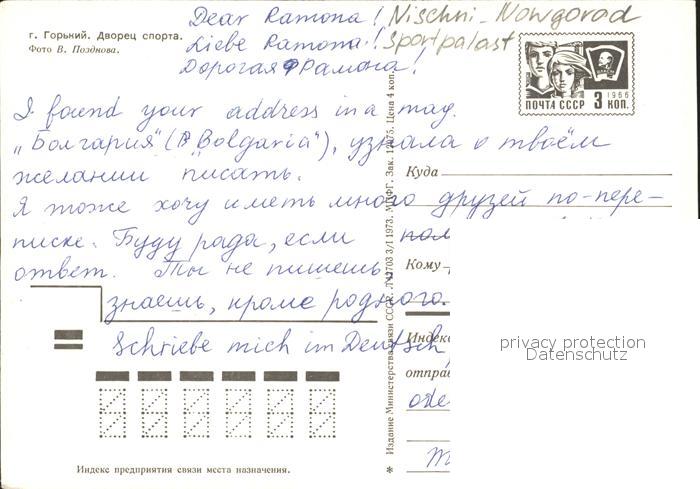 Dear Ramona! Nischni-Nowgorod
г. Горький. Дворец спорта. Liebe Ramona! Sportpalast
Фото В. Позднова.
Дорогая Рамона!
ПОЧТА СССР 3 КОП. 1966
I found your address in a mag.
„Болгария" (в „Bolgaria"), узнала о твоём
желании писать.
Куда
Я тоже хочу иметь много друзей по-пере-
писке. Буду рада, если
Кому
ответ. Ты не пишешь,
знаешь, кроме родного.
Индекс
Schriebe mich im Deutsch
отправ
Индекс предприятия связи места назначения.
* Издание Министерства связи СССР. 3/I 1973. МПФГ. Зак. Цена 4 коп.
privacy protection
Datenschutz